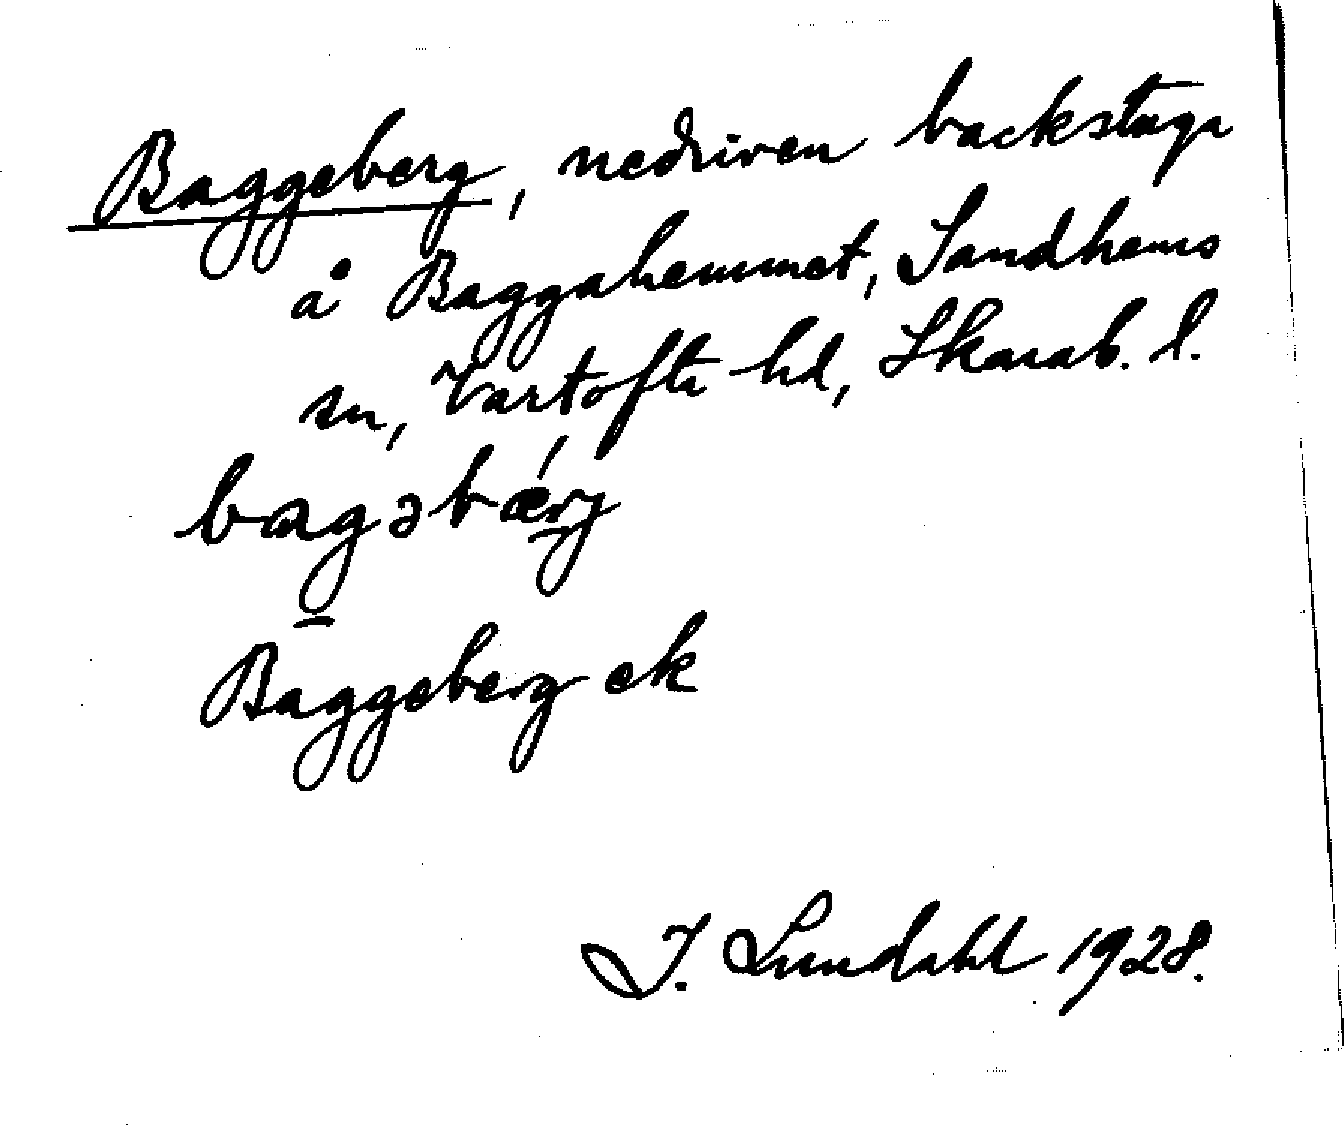 Baggeberg, nedriven backstuga
å Baggahemmet, Sandhems
sn, Vartofta hd, Skarab. l.
bagəbærg
Baggeberg ek
I. Lundahl 1928.